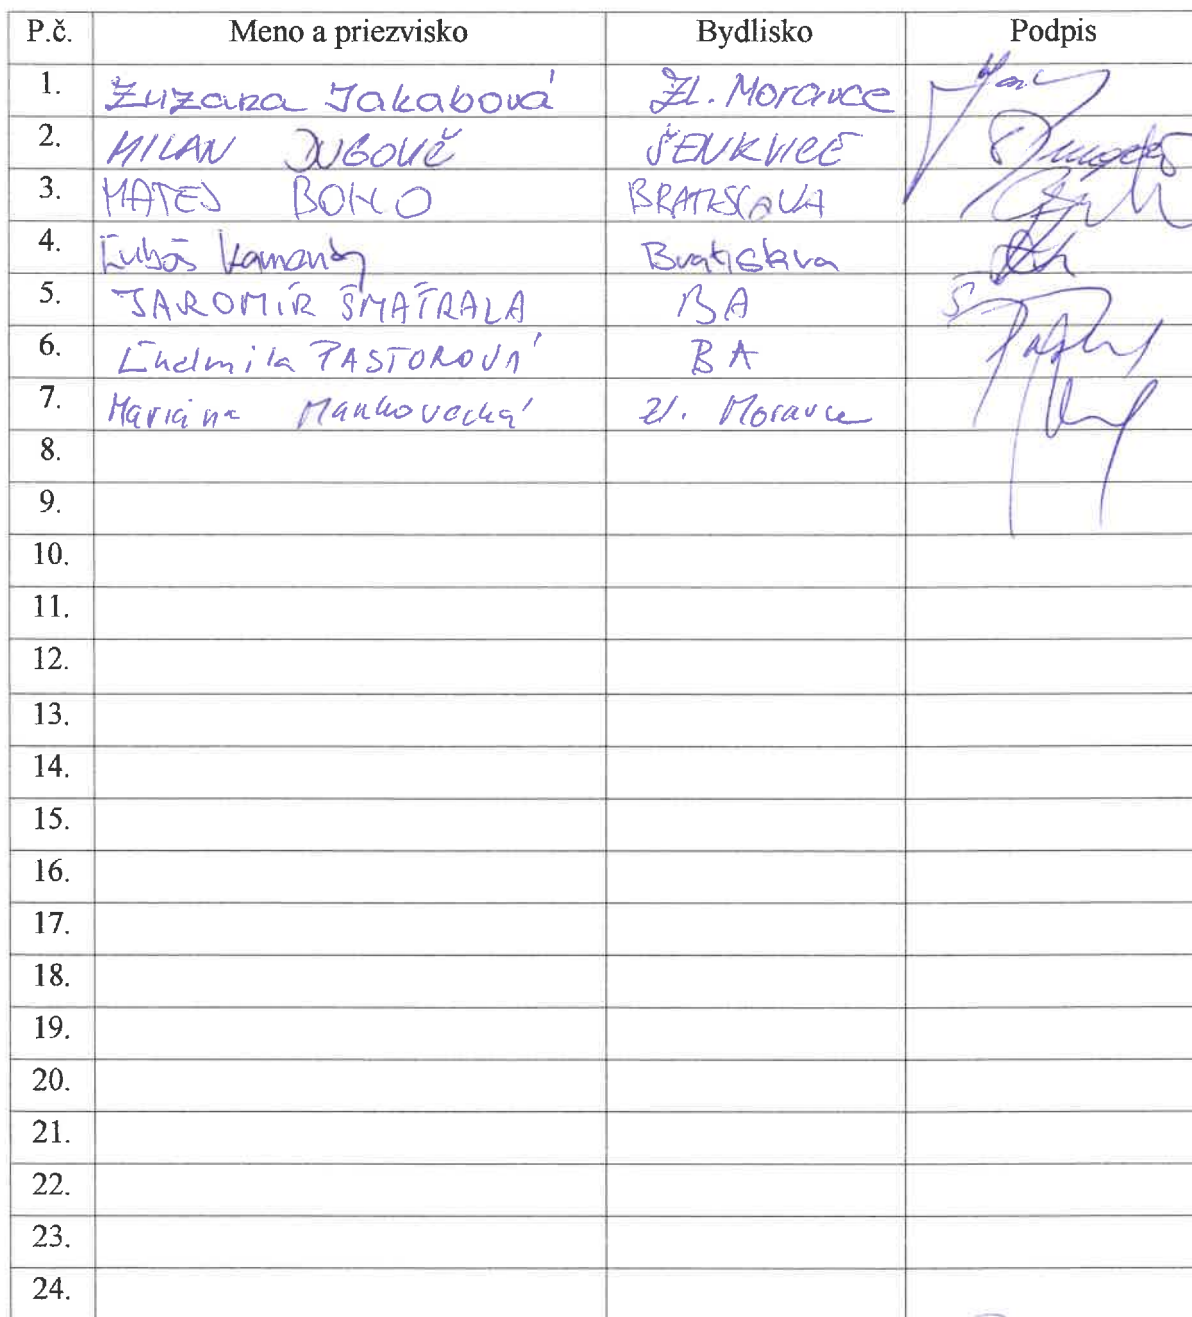 P.č. Meno a priezvisko Bydlisko Podpis
1. Zuzana Jakabová Zl. Moravce
2. MILAN DUGOVIČ ŠENKVICE
3. MATEJ BOHO BRATISLAVA
4. Ľuboš Kamenský Bratislava
5. JAROMÍR ŠMATRALA BA
6. Ľudmila PASTOROVÁ BA
7. Mariana Mankovecká Zl. Moravce
8.
9.
10.
11.
12.
13.
14.
15.
16.
17.
18.
19.
20.
21.
22.
23.
24.